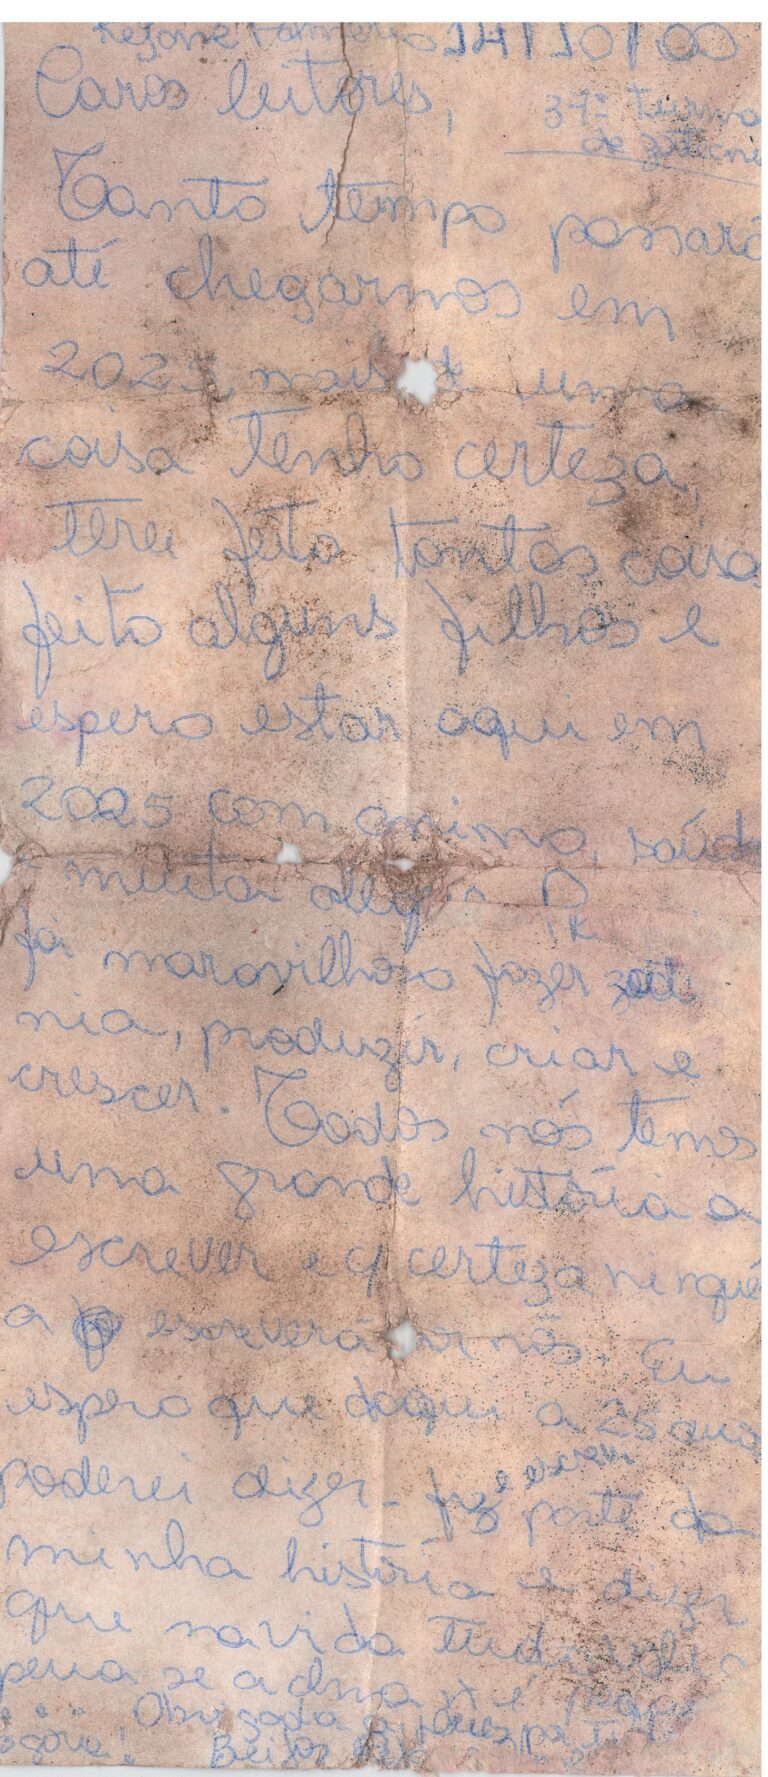 14/10/00
Caros leitores,
37ª Turma
de
Tanto tempo passará
até chegarmos em
2025, mais d uma
coisa tenho certeza,
terei feito tantas coisa
feito alguns filhos e
espero estar aqui em
2025 com animo, saúde
e muita
foi maravilhoso fazer
nia, produzir, criar e
crescer. Todos nós temos
uma grande história a
escrever e q certeza ningué
a escreverá por nós. Eu
espero que daqui a 25 anos
poderei dizer - fiz e escrevi parte da
minha história e dizer
que na vida tudo vale a
pena se a alma ñ é
Obrigada
agora! Beijos